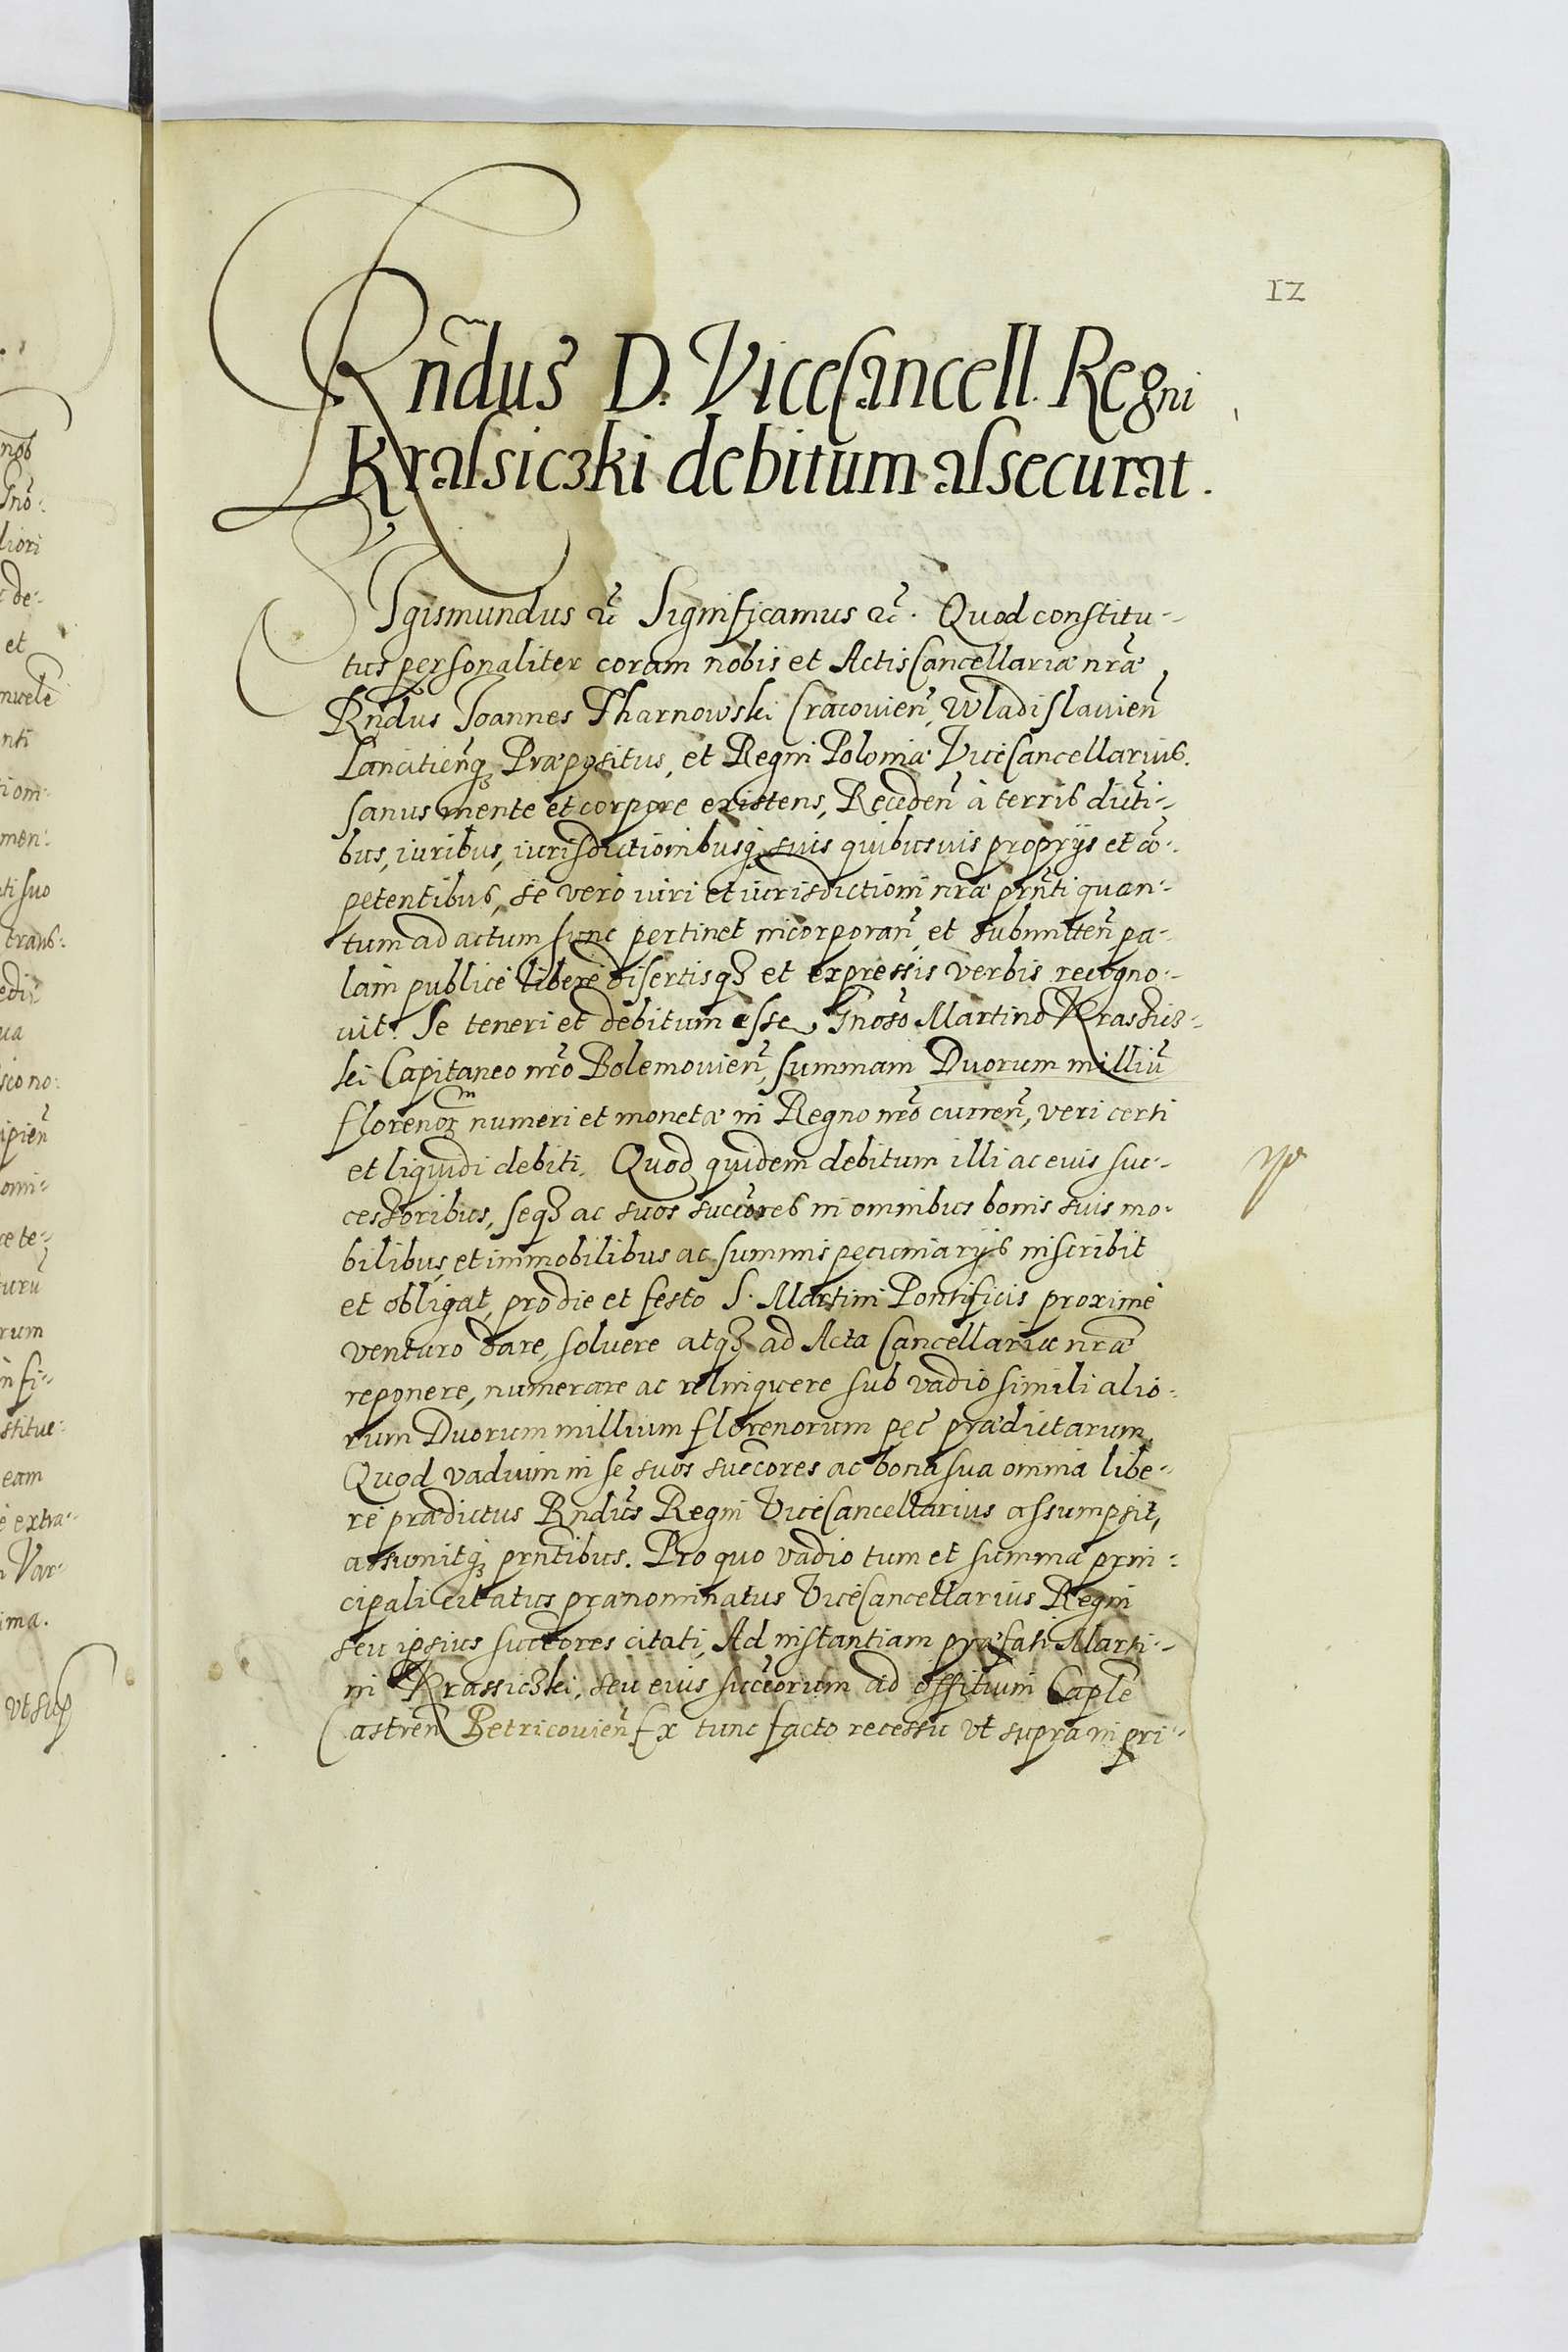 12
Rñdus D. ViceCancell. Regni
Krassiczki debitum assecurat.
SIgismundus &c̃ Significamus &c̃. Quod constitu-
tus personaliter coram nobis et Actis Cancellariæ nr̃æ
Rñdus Joannes Tharnowski Cracovieñ, Wladislavieñ
Lancitieñq; Præpositus, et Regni Poloniæ ViceCancellarius.
sanus mente et corpore existens, Recedeñ à terris districti-
bus, iuribus, iurisdictionibusq; suis quibusvis proprijs et cõ-
petentibus, se verò iuri et iurisdictioni nr̃æ prñti quan-
tum ad actum hunc pertinet incorporañ et submitteñ pa-
lam publicè liberè disertisq; et expressis verbis recogno-
vit. Se teneri et debitum esse Gñoso Martino Krassicz-
ki Capitaneo nr̃o Bolemovieñ, summam Duorum milliũ
florenorm numeri et monetæ in Regno nr̃o curreñ, veri certi
et liquidi debiti, Quod quidem debitum illi ac eius suc-
cessoribus, seq; ac suos succ̃ores in omnibus bonis suis mo-
bilibus et immobilibus ac summis pecuniarijs inscribit
et obligat, pro die et festo S. Martini Pontificis proximè
venturo dare, solvere atq; ad Acta Cancellariæ nr̃æ
reponere, numerare ac relinquere sub vadio simili alio-
rum Duorum millium florenorum pec̃ prædictarum.
Quod vadium in se suos succ̃ores ac bona sua omnia libe-
rè prædictus Rñdus Regni ViceCancellarius assumpsit,
assumitq; prñtibus. Pro quo vadio tum et summa prin-
cipali citatus prænominatus ViceCancellarius Regni
seu ipsius succ̃ores citati, Ad instantiam præfati Marti-
ni Krassiczki, seu eius succ̃orum ad officium Caplẽ
Castreñ Petricovieñ Ex tunc facto recessu ut supra in pri-
nob
Gñò-
liori
de-
et
nti
men:
ti suo
trans-
ipieñ
omi-
rum
in fi-
stitue-
eam
è extra-
Var-
ima.
vt sup